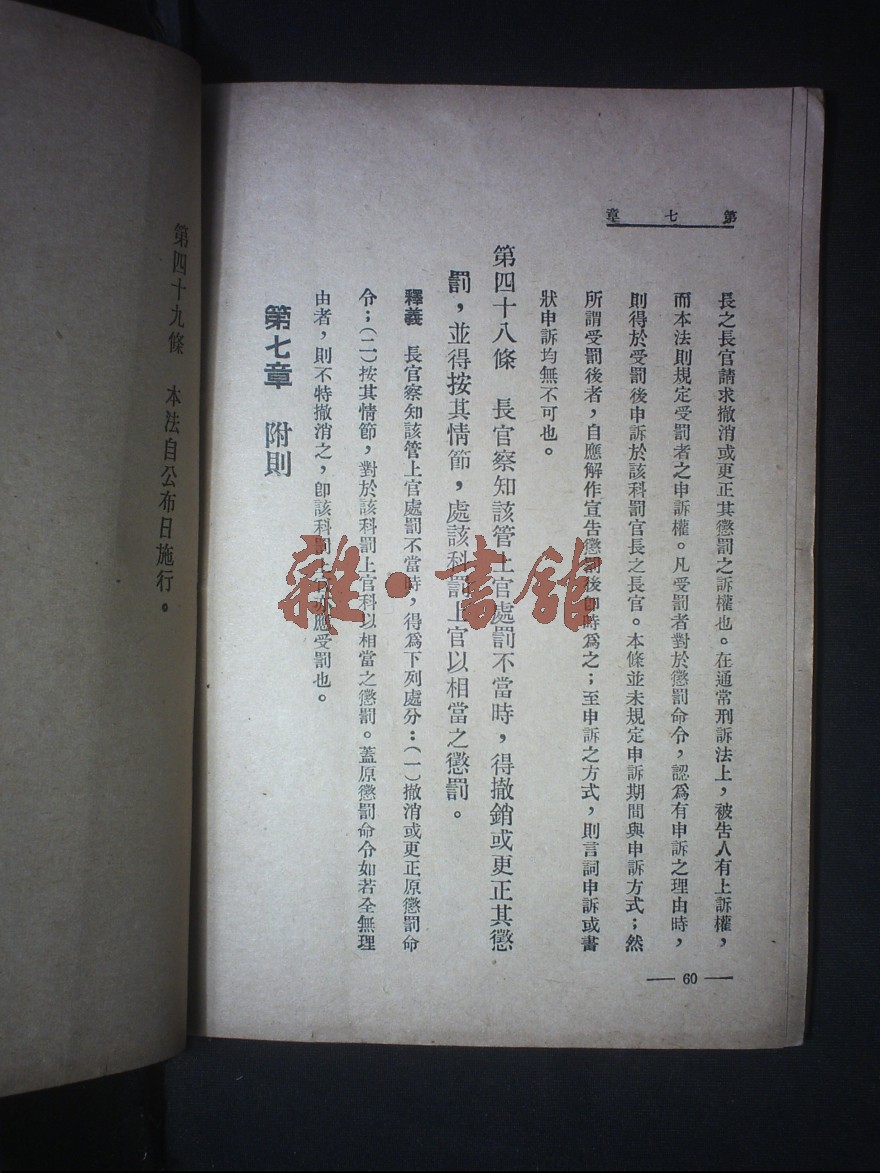 第七章
長之長官請求撤消或更正其懲罰之訴權也。在通常刑訴法上，被告人有上訴權，
而本法則規定受罰者之申訴權。凡受罰者對於懲罰命令，認爲有申訴之理由時，
則得於受罰後申訴於該科罰官長之長官。本條並未規定申訴期間與申訴方式；然
所謂受罰後者，自應解作宣告懲罰後卽時爲之；至申訴之方式，則言詞申訴或書
狀申訴均無不可也。
第四十八條　長官察知該管上官處罰不當時，得撤銷或更正其懲
罰，並得按其情節，處該科罰上官以相當之懲罰。
釋義　長官察知該管上官處罰不當時，得爲下列處分：(一)撤消或更正原懲罰命
令；(二)按其情節，對於該科罰上官科以相當之懲罰。蓋原懲罰命令如若全無理
由者，則不特撤消之，卽該科罰上官亦應受罰也。
第七章　附則
— 60 —
第四十九條　本法自公布日施行。
雜·書館